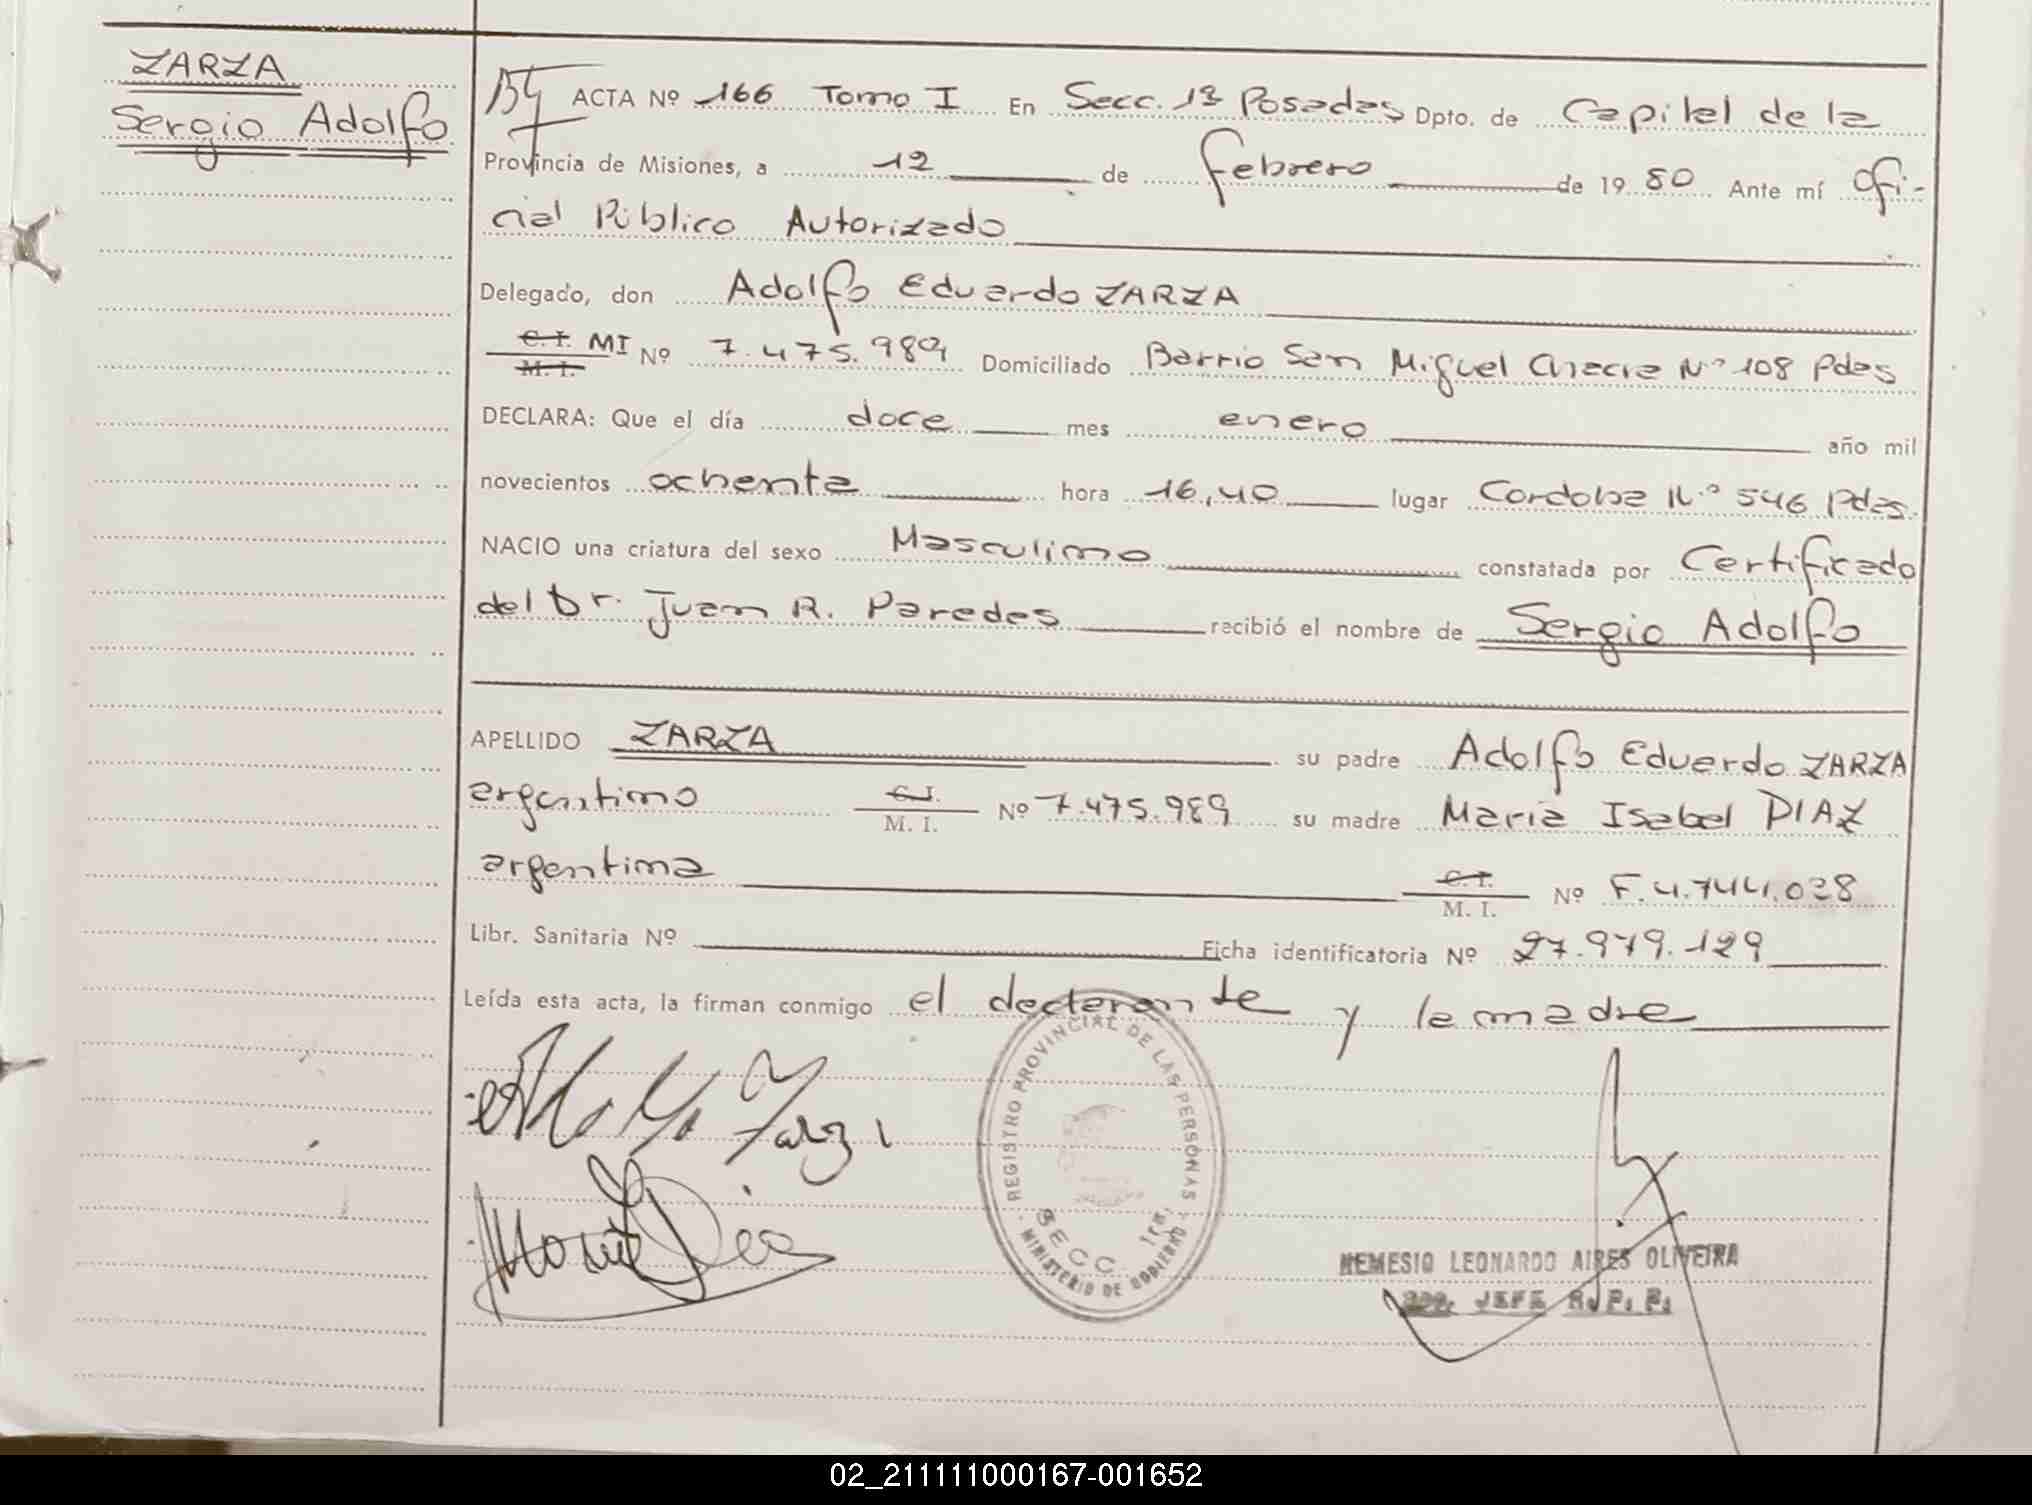 ZARZA
Sergio Adolfo
ACTA Nº 166 Tomo I En Secc. 1ª Posadas Dpto. de Capital de la
Provincia de Misiones, a 12 de febrero de 1980 Ante mí Ofi-
cial Público Autorizado
Delegado, don Adolfo Eduardo ZARZA
C.I. MI
M. I. Nº 7.475.989 Domiciliado Barrio San Miguel Chacra Nº 108 Pdas
DECLARA: Que el día doce mes enero año mil
novecientos ochenta hora 16,40 lugar Cordoba N.º 546 Pdas.
NACIO una criatura del sexo Masculino constatada por Certificado
del Dr. Juan R. Paredes recibió el nombre de Sergio Adolfo
APELLIDO ZARZA su padre Adolfo Eduardo ZARZA
argentino C.I. M. I. Nº 7.475.989 su madre Maria Isabel DIAZ
argentina C.I. M. I. Nº F.4.744.028
Libr. Sanitaria Nº Ficha identificatoria Nº 27.979.129
Leída esta acta, la firman conmigo el declarante y la madre
REGISTRO PROVINCIAL DE LAS PERSONAS
SECC. 1ra.
MINISTERIO DE GOBIERNO
NEMESIO LEONARDO AIRES OLIVEIRA
JEFE R. P. P.
02_211111000167-001652